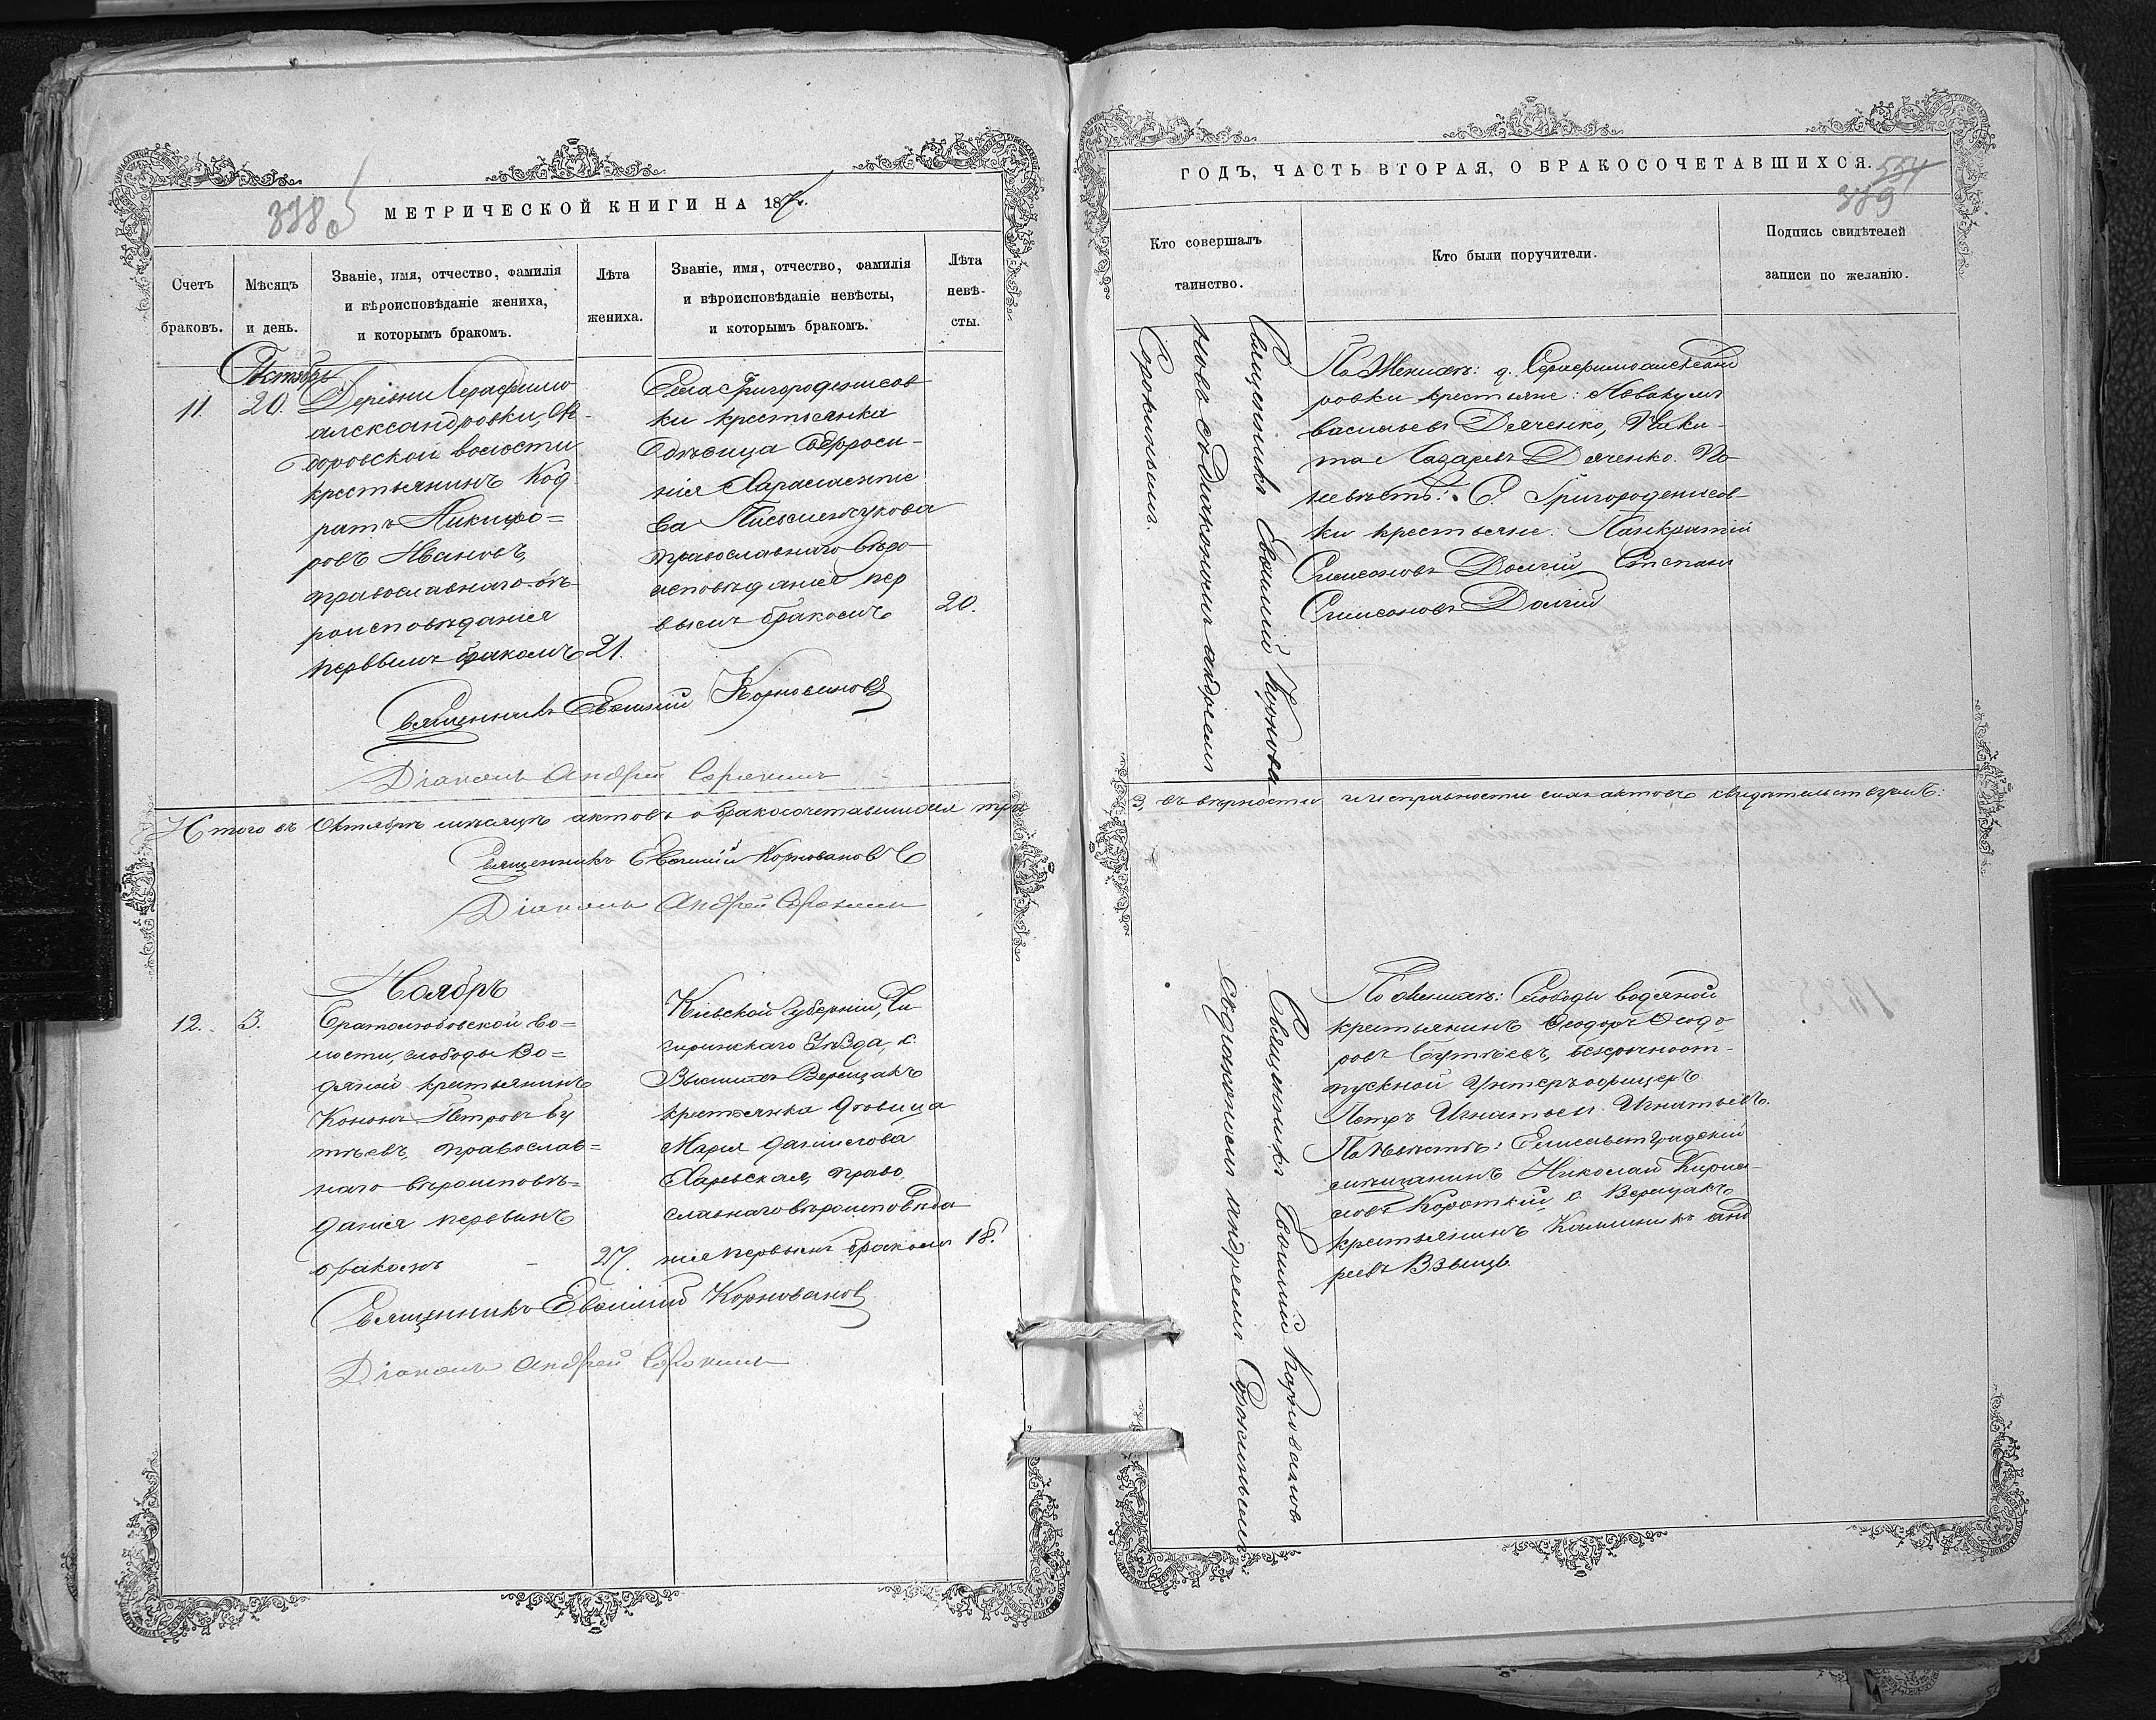 338 об
МЕТРИЧЕСКОЙ КНИГИ НА 187
Счетъ браковъ.
Мѣсяцъ и день.
Званіе, имя, отчество, фамилія
и вѣроисповѣданіе жениха,
и которымъ бракомъ.
Лѣта жениха.
Званіе, имя, отчество, фамилія
и вѣроисповѣданіе невѣсты,
и которымъ бракомъ.
Лѣта невѣ-
сты.
Октябрь
11.
20.
Деревни Серафимо
александровки,
доровской волости
крестьянинъ Код
ратъ Никифо=
ровъ Ивановъ,
православнаго вѣ-
роисповѣданія
первымъ бракомъ
21.
Села Григороденисов
ки крестьянка
дѣвица Ефроси-
нія Харалампіе
ва Письменчукова
православнаго вѣро
исповѣданія пер
вымъ бракомъ
20.
Священникъ Евѳимій Корновановъ
Діаконъ Андрей Сорокинъ
Итого въ Октябрѣ мѣсяцѣ актовъ о бракосочетавшихся три
Священникъ Евѳимій Корновановъ
Діаконъ Андрей Сорокинъ
Ноябрь
12.
3.
Братолюбовской во=
лости, слободы Во=
дяной крестьянинъ
Кононъ Петровъ Бу
тѣевъ, православ=
наго вѣроисповѣ=
данія первымъ
бракомъ
27.
Кіевской губерніи, Чи
гиринскаго уѣзда, с.
Вершакъ
крестьянка дѣвица
Марія Даніилова
Харьская, право
славнаго вѣроисповѣда
нія первымъ бракомъ
18.
Священникъ Евѳимій Корновановъ
Діаконъ Андрей Сорокинъ
ГОДЪ, ЧАСТЬ ВТОРАЯ, О БРАКОСОЧЕТАВШИХСЯ.
554
339
Кто совершалъ
таинство.
Кто были поручители.
Подпись свидѣтелей
записи по желанію.
Священникъ Евѳимій Корнова
новъ съ Діакономъ андреемъ
Сорокинымъ.
По Женихѣ: д. Серафимоалександ
ровки крестьяне: Аввакумъ
васильевъ Дяченко, Ники-
та Лазаревъ Дяченко. По
невѣстѣ: С. Григороденисов-
ки крестьяне: Панкратій
Симеоновъ Долгій Степанъ
Симеоновъ Долгій
3, въ вѣрности и исправности сихъ актовъ свидѣтельствуемъ:
Священникъ Евѳимій Корновановъ
съ діакономъ андреемъ Сорокинымъ
По женихѣ: Слободы водяной
крестьянинъ Ѳеодоръ Ѳеодо
ровъ Бутѣевъ, безсрочноот-
пускной Унтеръофицеръ
Петръ Игнатьевъ Игнатьевъ.
По невѣстѣ: Елисаветградскій
мѣщанинъ Николай Кирил-
ловъ Короткій с. Вершакъ
крестьянинъ Калиникъ анд
реевъ